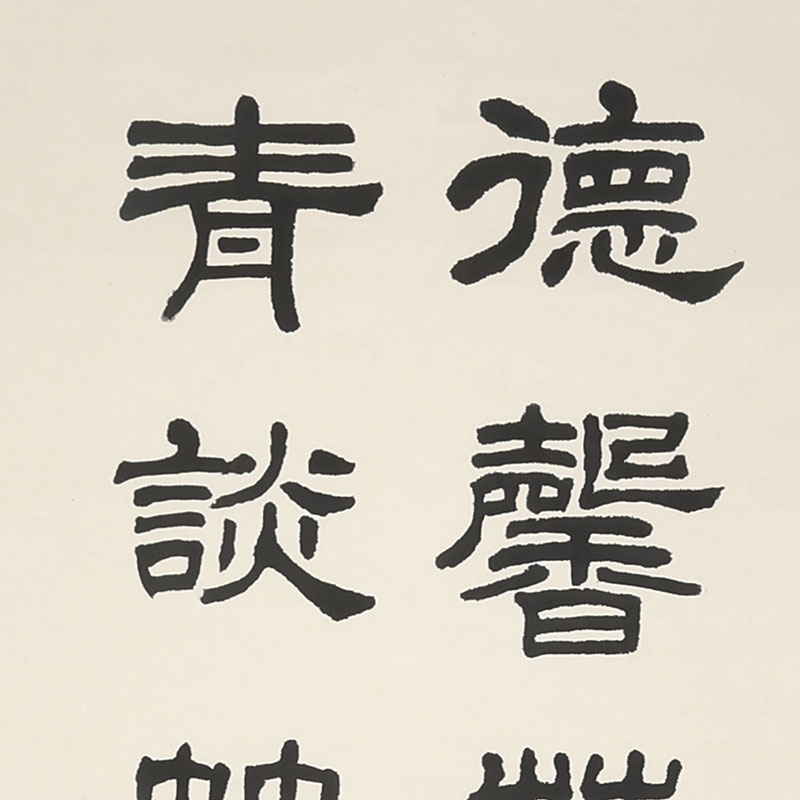 德馨
青談